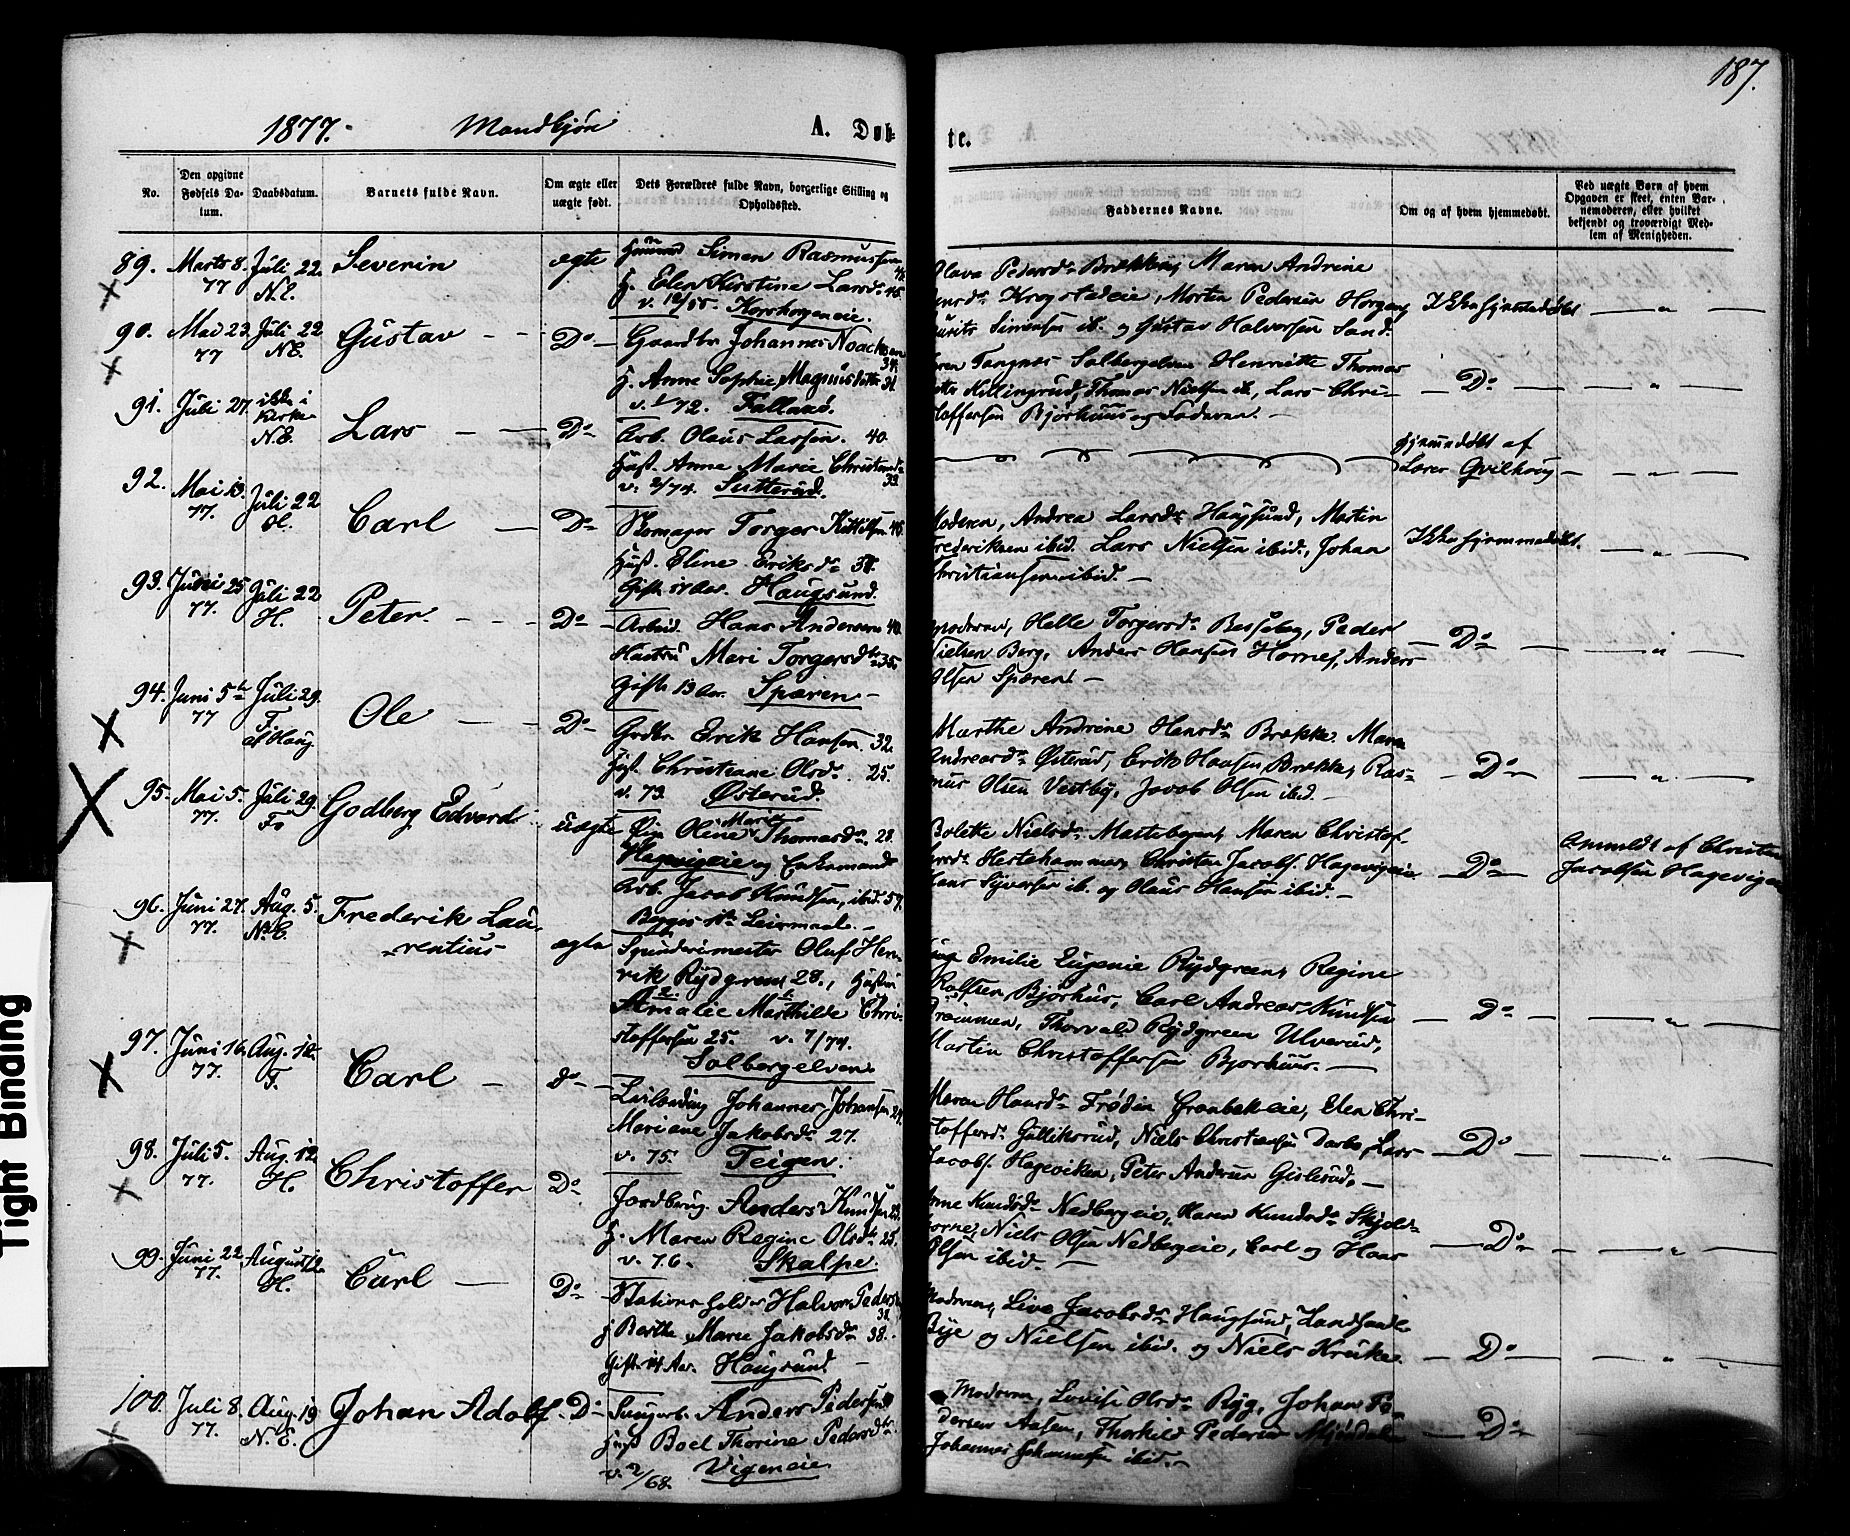 187.
1877. Mandkjøn A. Døb-
te.
No.
Den opgivne Fødsels Da-
tum.
Daabsdatum.
Barnets fulde Navn.
Om ægte eller
uægte født.
Dets Forældres fulde Navn, borgerlige Stilling og
Opholdssted.
Faddernes Navne.
Om og af hvem hjemmedøbt.
Ved uægte Børn af hvem
Opgaven er skeet, enten Bar-
nemoderen, eller hvilket
bekjendt og troværdigt Med-
lem af Menigheden.
89. Marts 8. Juli 22. Severin ægte Simen Rasmussen
77 N.E. H. Elen Kirstine Larsd. 45.
v. 12/55 Korshorgeneie.
Olava Pedersdr Brekke, Maren Andrine
Krogstadeie, Morten Pedersen Horgen,
Simensen ib. og Gustav Halvorsen Sand.
Ikke hjemmedøbt — „ —
90. Mai 23. Juli 22 Gustav — — Do — Gaardbr Johannes Noacksen
77 N.E. 34.
H. Anne Sophie Magnusdatter 31
v. 1/72. Fallaxø.
Tangnes Solbergelven Henriette Thomas
Killingrud, Thomas Nielsen ib, Lars Chri-
stoffersen Bjørhuus og Faderen. —
— Do — — „ —
91. Juli 27. ikke i
Kirke
N.E.
Lars — — Do Arb. Olaus Larsen. 40.
Hust. Anne Marie Christiansdr 33.
v. 2/74. Sutterud.
hjemmedøbt af
Lærer Gvilhaug — „ —
92. Mai 13. Juli 22 Carl — Do Skomager Torger Kittilsen 46.
77. H.
Hust. Eline Eriksdr 38.
Gift 17 Aar. Haugsund.
Moderen, Andrea Larsdr Haugsund, Martin
Frederiksen ibid. Lars Nielsen ibid., Johan
Christiansen ibid. —
Ikke hjemmedøbt. — „ —
93. Juni 25 Juli 22 Peter. — — — Do — Arbeid. Hans Andersen 40.
77. H.
Hustru Mari Torgersdtr 35.
Gift 13 Aar. Spæren —
Moderen, Helle Torgersdr Besseberg, Peder
Nielsen Berg, Anders Hansen Hornes, Anders
Olsen Spæren. —
— Do — — „ —
94. Juni 5te Juli 29. Ole — — Do — Grdbr Erik Hansen 32.
77 F.
af Haug
Hust. Christiane Olsdr. 25.
v. 73. Østerud.
Marthe Andrine Hansdr Brekke. Maren
Andreasdr Østerud, Erik Hansen Brekke, Ras-
mus Olsen Vestby, Jacob Olsen ibid. —
— Do — — „ —
95. Mai 5. Juli 29. Godberg Edvard uægte Pige Oline Marie Thomasdr. 28.
77. F.
Hagevigeie og Enkemand
Arb. Jacob Knudsen, ibid. 57.
Begges 1te Leiermaal. —
Bolette Nielsdr Mastebogen, Maren Christof-
fersdr Hestehammer, Christen Jacobs. Hagevigeie
Hans Syversen ib. og Olaus Hansen ibid. —
— Do — Anmeldt af Christen
Jacobsen Hagevigeie
96. Juni 27. Aug. 5. Frederik Lau-
77. N.E. rentius ægte Spundermester Oluf Hen-
rik Rydgreen 28., Hustru
Amalie Mathilde Chri-
stoffersen 25. v. 7/74.
Solbergelven
Emilie Eugenie Rydgreen, Regine
Rolfsen Bjørhus, Carl Andreas Knudsen
Drammen, Thorvald Rydgreen Ulverud,
Martin Christoffersen Bjørhuus. —
— Do — — „ —
97. Juni 16. Aug. 12. Carl — do — Leilænding Johannes Johansen 24.
77. F.
Mariane Jakobsdr 27.
v. 75. Teigen.
Maren Hansdr Frødin Grønbekeie, Elen Chri-
stoffersdr Gulliksrud, Niels Christensen Darbo, Lars
Jacobs. Hageviken, Peter Andersen Gislerud. —
— Do — — „ —
98. Juli 5. Aug. 12. Christoffer Do. Jordbrug. Anders Knudsen
77. H.
H. Maren Regine Olsdr 25.
v. 76. Skalpe.
Anne Knudsdr Nedbergeie, Karen Knudsdr Skjelds-
horne, Niels Olsen Nedbergeie, Carl og Hans
Olsen ibid. —
— Do — — „ —
99. Juni 22. August 12. Carl — Do — Stationsholder Halvor Pedersen
77. H. 38.
H. Berthe Marie Jakobsdr 38.
Gift 14 Aar. Haugsund —
Moderen, Live Jacobsdr Haugsund, Landhandl
Bye og Nielsen ibid. og Niels Kruke.
— Do — — „ —
100. Juli 8. Aug. 19 Johan Adolf. Do — Anders Pedersen
77. N.E.
Hust Boel Thorine Pedersdtr
v. 2/68. Vigeneie
Moderen, Lovise Olsdr Ryg, Johan Pe-
dersen Aasen, Thorkild Pedersen Mjøndalen
Johannes Johannesen ibid. —
— Do — — „ —
Tight Binding